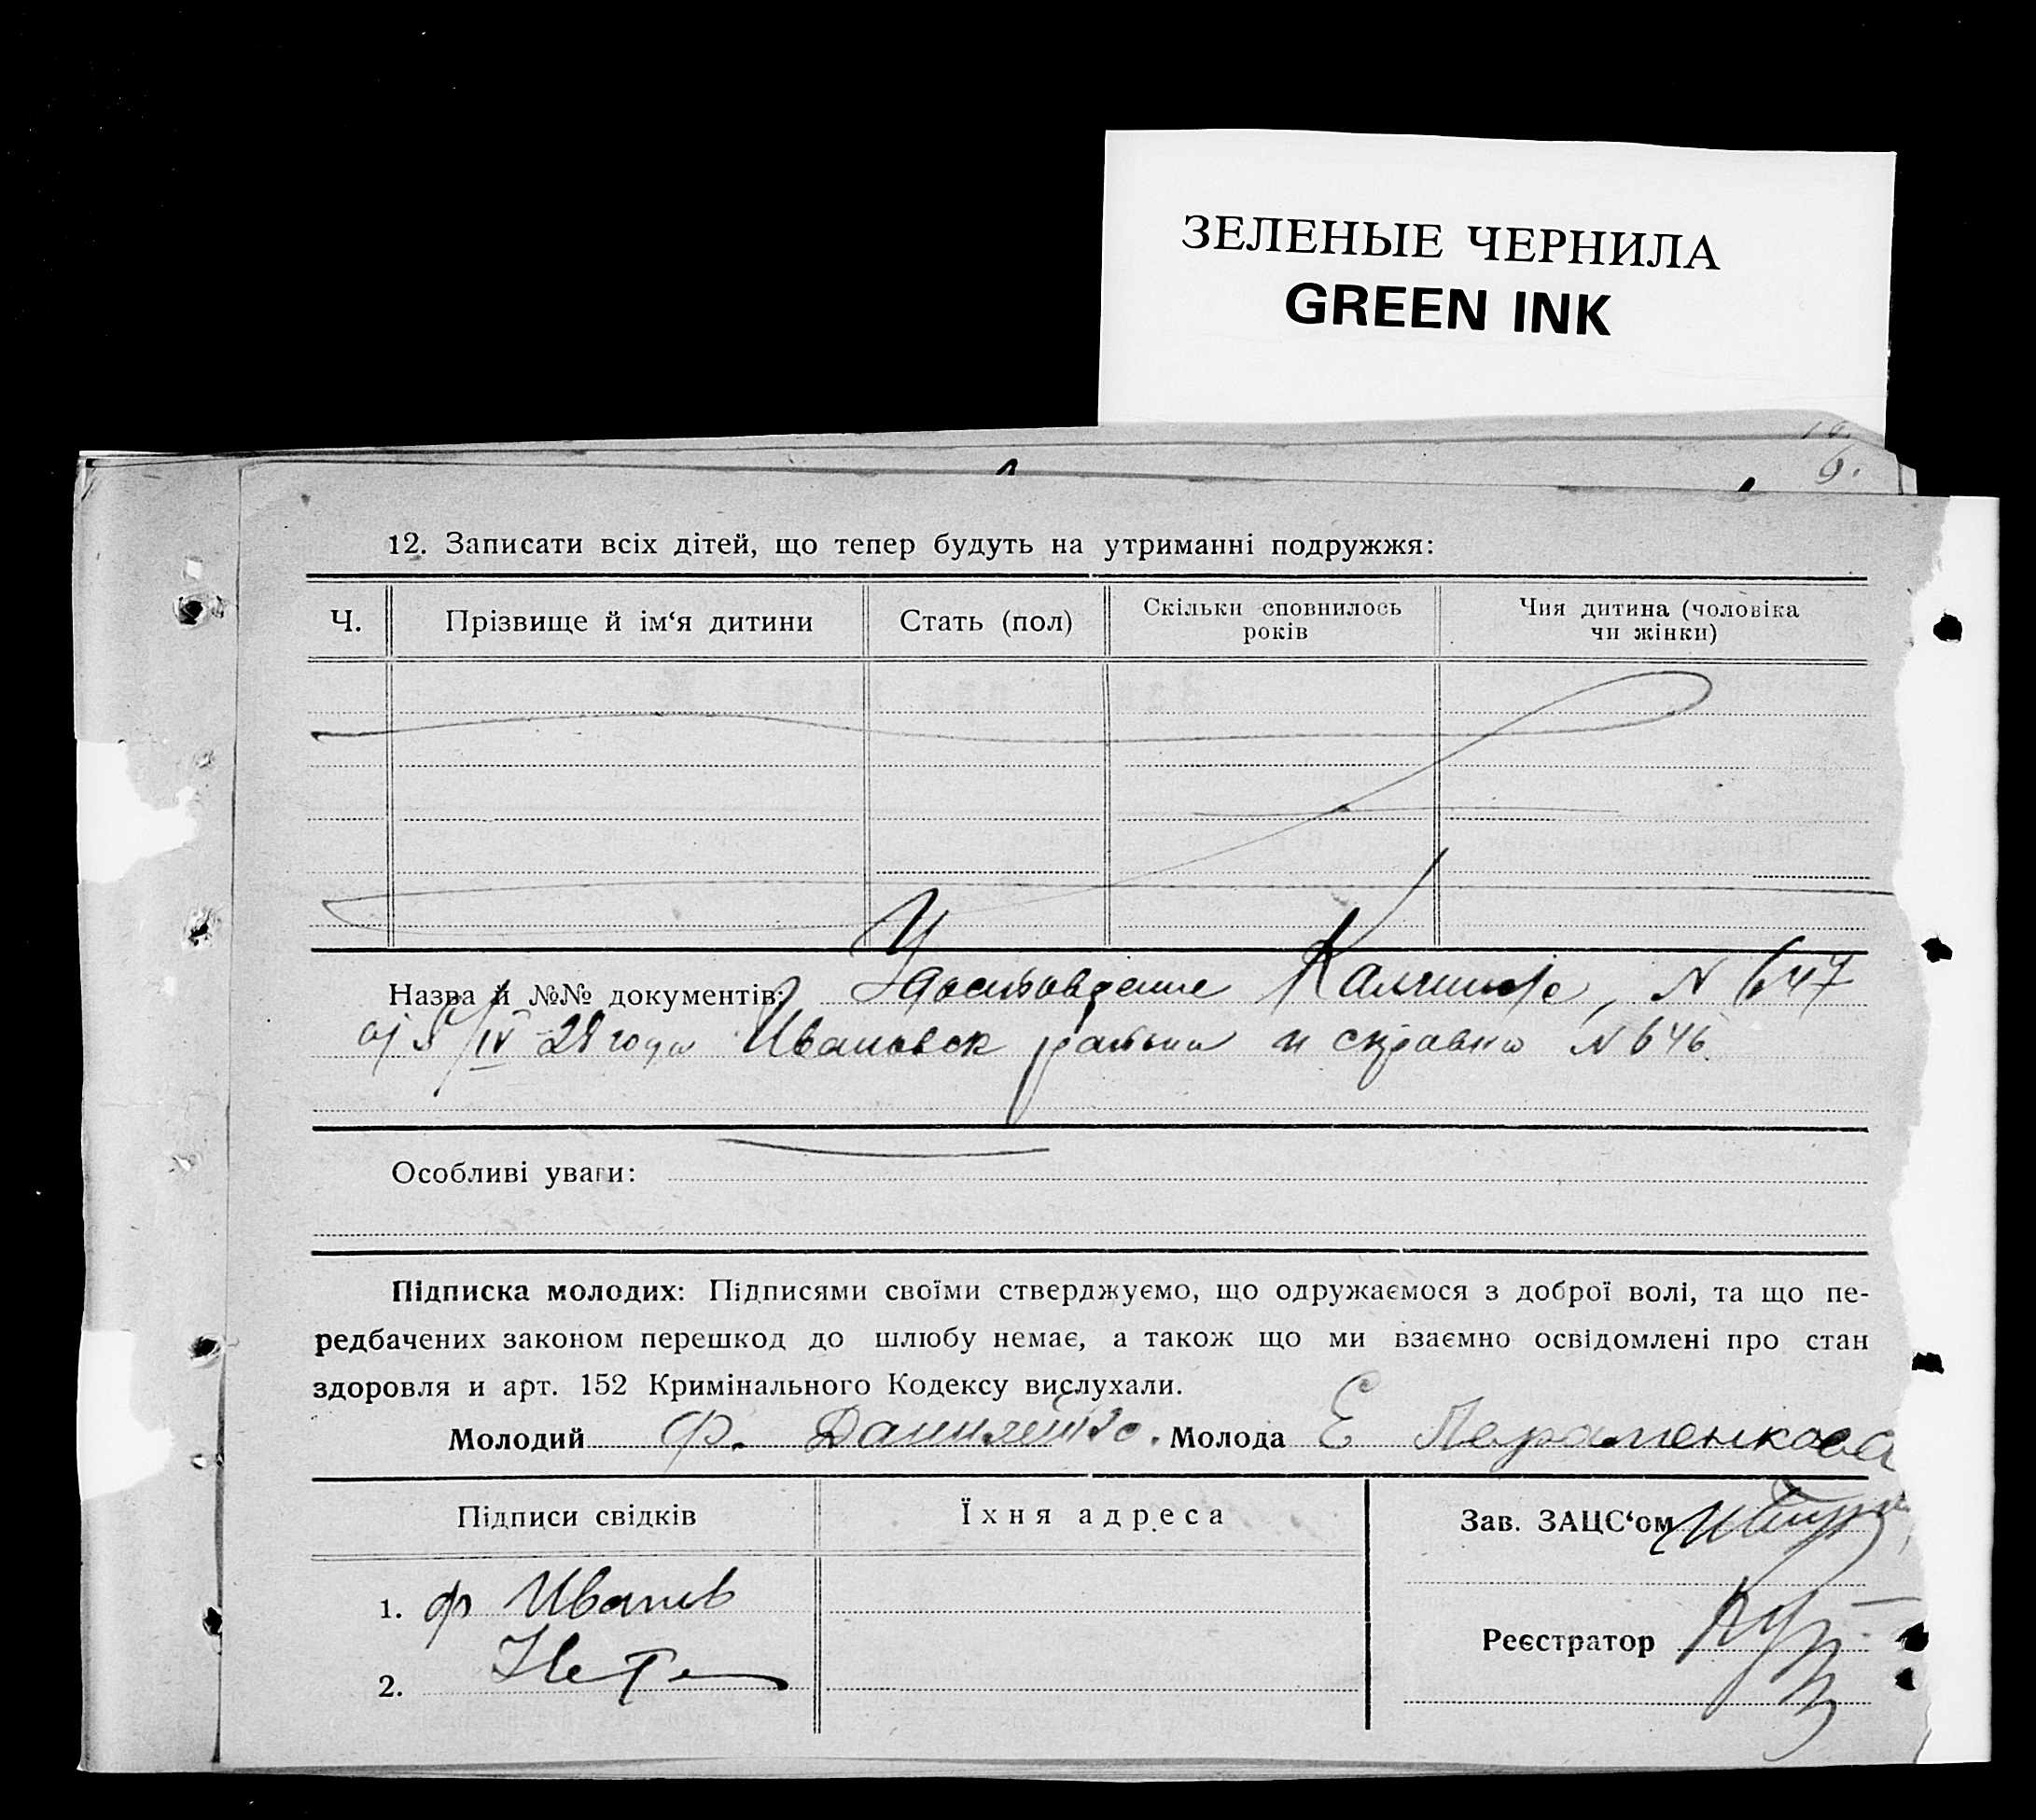 ЗЕЛЕНЫЕ ЧЕРНИЛА
GREEN INK
6.
12. Записати всіх дітей, що тепер будуть на утриманні подружжя:
Ч. Прізвище й ім‘я дитини Стать (пол) Скільки сповнилось років Чия дитина (чоловіка чи жінки)
Назва й №№ документів: N 647
IV 28 года Ивановск района и справка N 646.
Особливі уваги:
Підписка молодих: Підписями своїми стверджуємо, що одружаємося з доброї волі, та що пе-
редбачених законом перешкод до шлюбу немає, а також що ми взаємно освідомлені про стан
здоровля и арт. 152 Кримінального Кодексу вислухали.
Молодий Ф. Даниленко. Молода Е
Підписи свідків Їхня адреса Зав. ЗАЦС‘ом
1. ф Иванов
Реєстратор
2.